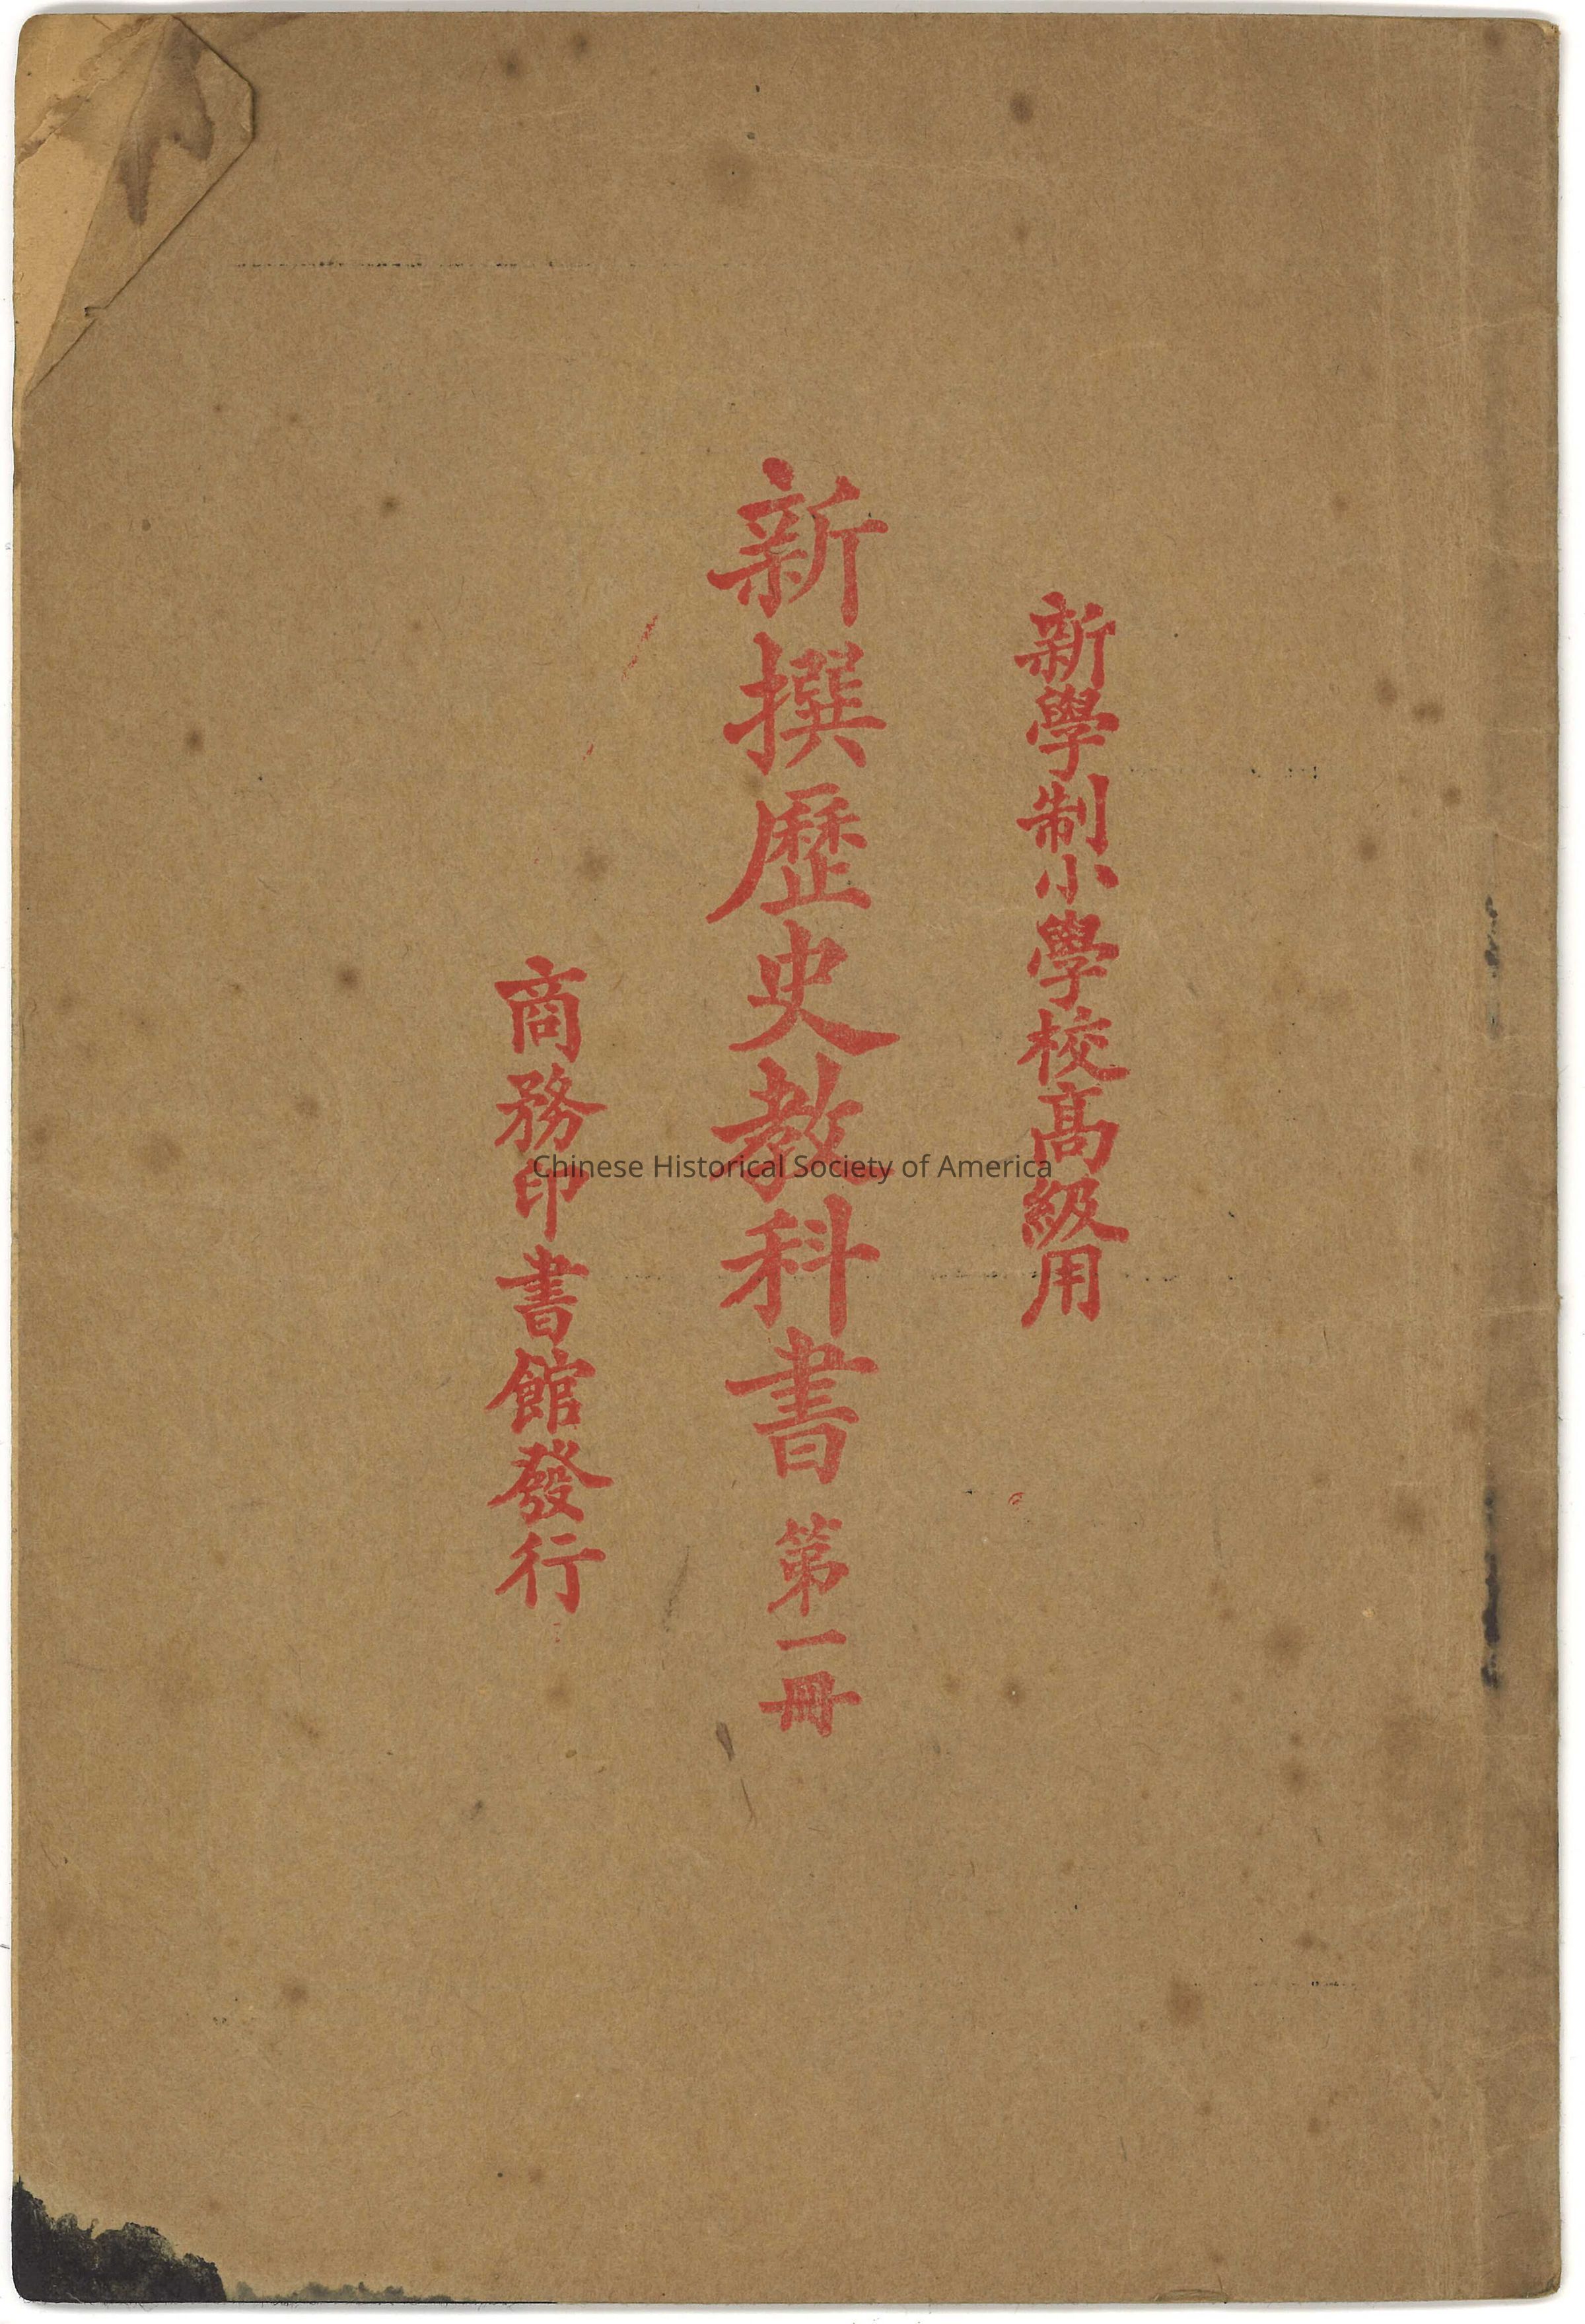 新學制小學校高級用
新撰歷史教科書 第一冊
商務印書館發行
Chinese Historical Society of America